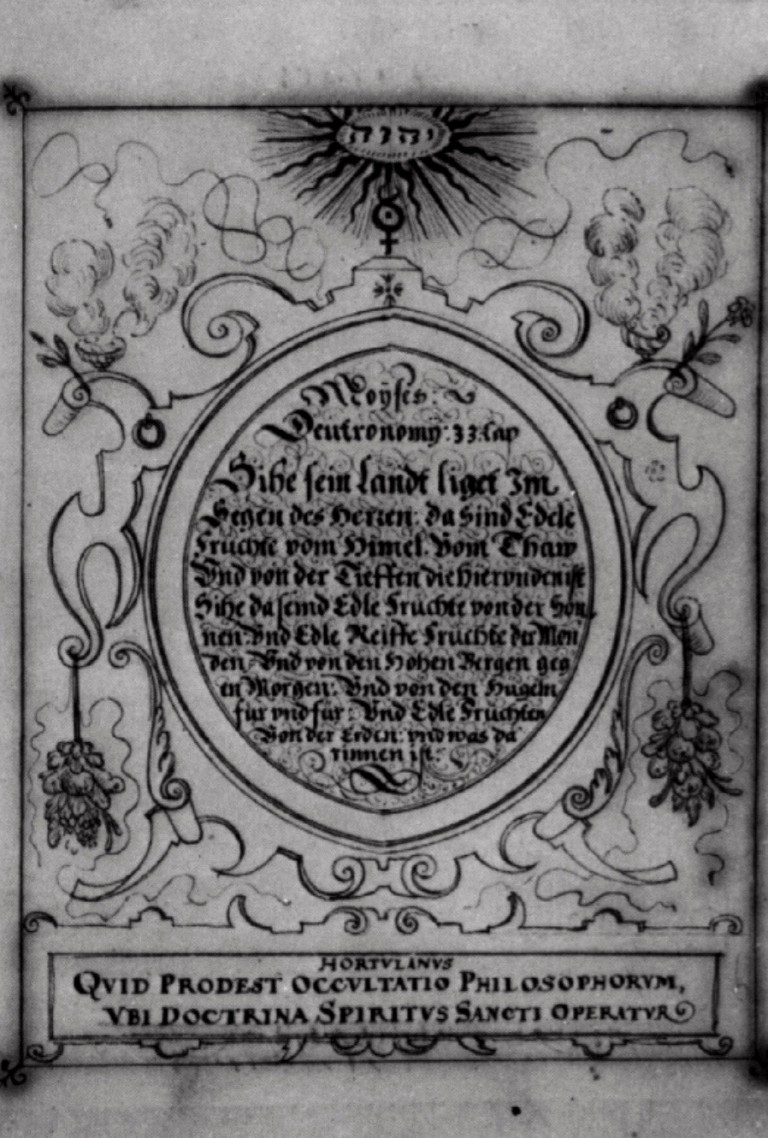 יהוה
Moÿses:
Deutronomy: 33. Cap
Sihe sein Landt liget Im
Segen des Herren: da Sind Edele
Fruchte vom Himel. Vom Thaw
Vnd von der Tieffen die hier vnden ist
Sihe da seind Edle Fruchte von der Son
nen: Vnd Edle Reiffe Fruchte der Mon
den: Vnd von den Hohen Bergen geg
en Morgen: Vnd von den Hugeln
fur vnd fur: Vnd Edle Fruchten
Von der Erden: vnd was da
rinnen ist:
HORTVLANVS
QVID PRODEST OCCVLTATIO PHILOSOPHORVM,
VBI DOCTRINA SPIRITVS SANCTI OPERATVR